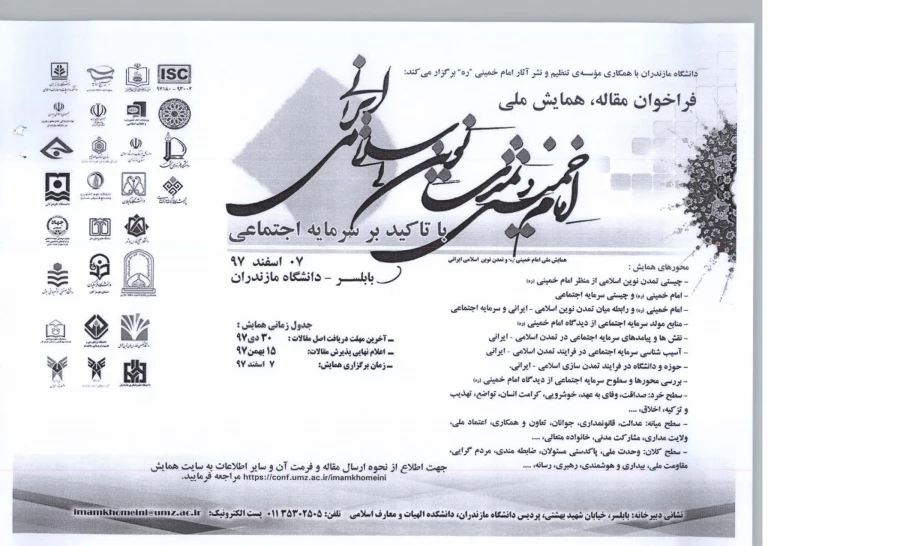 دانشگاه مازندران با همکاری مؤسسه‌ی تنظیم و نشر آثار امام خمینی "ره" برگزار می‌کند:
فراخوان مقاله، همایش ملی
امام خمینی و تمدن نوین اسلامی ایرانی
با تاکید بر سرمایه اجتماعی
همایش ملی امام خمینی (ره) و تمدن نوین اسلامی ایرانی
۰۷ اسفند ۹۷
بابلسر - دانشگاه مازندران
ISC
۹۷۱۸۰ - ۹۳۰۰۲
محورهای همایش :
- چیستی تمدن نوین اسلامی از منظر امام خمینی (ره)
- امام خمینی (ره) و چیستی سرمایه اجتماعی
- امام خمینی (ره) و رابطه میان تمدن نوین اسلامی - ایرانی و سرمایه اجتماعی
- منابع مولد سرمایه اجتماعی از دیدگاه امام خمینی (ره)
- نقش ها و پیامدهای سرمایه اجتماعی در تمدن اسلامی - ایرانی
- آسیب شناسی سرمایه اجتماعی در فرایند تمدن اسلامی - ایرانی
- حوزه و دانشگاه در فرایند تمدن سازی اسلامی - ایرانی.
- بررسی محورها و سطوح سرمایه اجتماعی از دیدگاه امام خمینی (ره)
- سطح خرد: صداقت، وفای به عهد، خوشرویی، کرامت انسان، تواضع، تهذیب
و تزکیه، اخلاق، ....
- سطح میانه: عدالت، قانونمداری، جوانان، تعاون و همکاری، اعتماد ملی،
ولایت مداری، مشارکت مدنی، خانواده متعالی، ....
- سطح کلان: وحدت ملی، پاکدستی مسئولان، ضابطه مندی، مردم گرایی،
مقاومت ملی، بیداری و هوشمندی، رهبری، رسانه، ....
جدول زمانی همایش :
- آخرین مهلت دریافت اصل مقالات : ۳۰ دی۹۷
- اعلام نهایی پذیرش مقالات: ۱۵ بهمن۹۷
- زمان برگزاری همایش: ۷ اسفند ۹۷
جهت اطلاع از نحوه ارسال مقاله و فرمت آن و سایر اطلاعات به سایت همایش
https://conf.umz.ac.ir/imamkhomeini مراجعه فرمایید.
نشانی دبیرخانه: بابلسر، خیابان شهید بهشتی، پردیس دانشگاه مازندران، دانشکده الهیات و معارف اسلامی تلفن: ۰۱۱۳۵۳۰۲۵۰۵ پست الکترونیک: imamkhomeini@umz.ac.ir